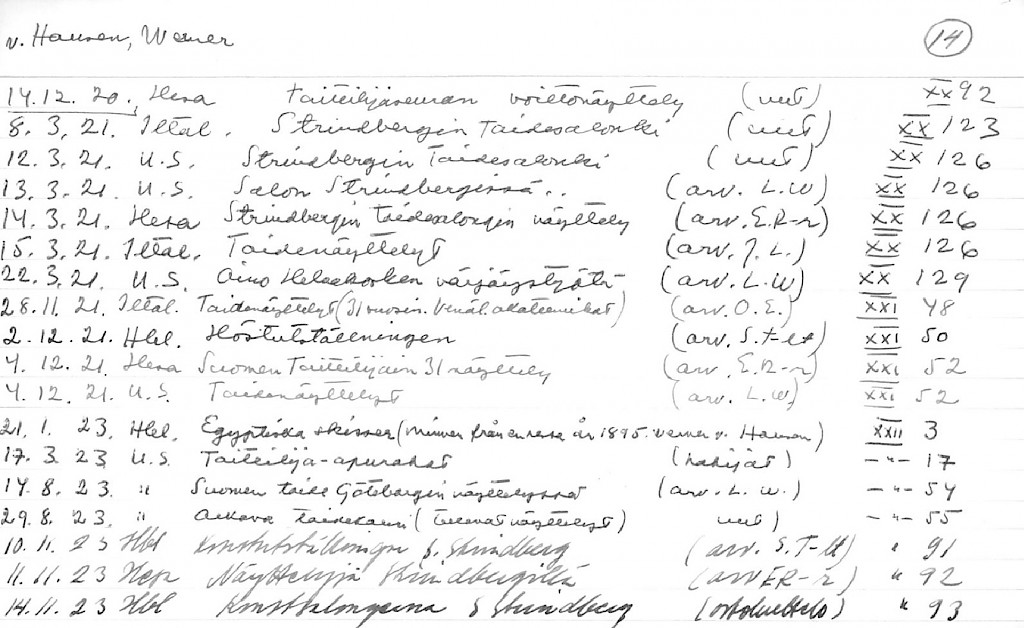 v. Hausen, Werner 14
14.12.20., Hesa Taiteilijaseuran voittonäyttely (uut) XX 92
8.3.21. Iltal. Strindbergin Taidesalonki (uut) XX 123
12.3.21. U.S. Strindbergin Taidesalonki (uut) XX 126
13.3.21. U.S. Salon Strindbergissä.. (arv. L.W) XX 126
14.3.21. Hesa Strindbergin taidesalongin näyttely (arv. E.R-r) XX 126
15.3.21. Iltal. Taidenäyttelyt (arv. J.L.) XX 126
22.3.21. U.S. Aino värjäystyötä (arv. L.W) XX 129
28.11.21. Iltal. Taidenäyttelyt (31 vuosin. Venäl. akatemikot) (arv. O.E.) XXI 48
2.12.21. Hbl. Höstutställningen (arv. S.T-lt) XXI 50
4.12.21. Hesa Suomen Taiteilijain 31 näyttely (arv. E.R-r) XXI 52
4.12.21. U.S. Taidenäyttelyt (arv. L.W) XXI 52
21.1.23. Hbl. Egyptiska skisser (minnen från en resa år 1895. Werner v. Hausen) XXII 3
17.3.23 U.S. Taiteilija-apurahat (hakijat) -"- 17
14.8.23. " Suomen taide Göteborgin näyttelyssä (arv. L.W.) -"- 54
29.8.23. " Alkava taidekausi (tulevat näyttelyt) uut) -"- 55
10.11.23 Hbl Konstutställningar S. Strindberg (arv. S.T-lt) " 91
11.11.23 Hesa Näyttelyjä Strindbergillä (arv ER-r) " 92
14.11.23 Hbl Konstsalongerna S Strindberg (ostoluettelo) " 93